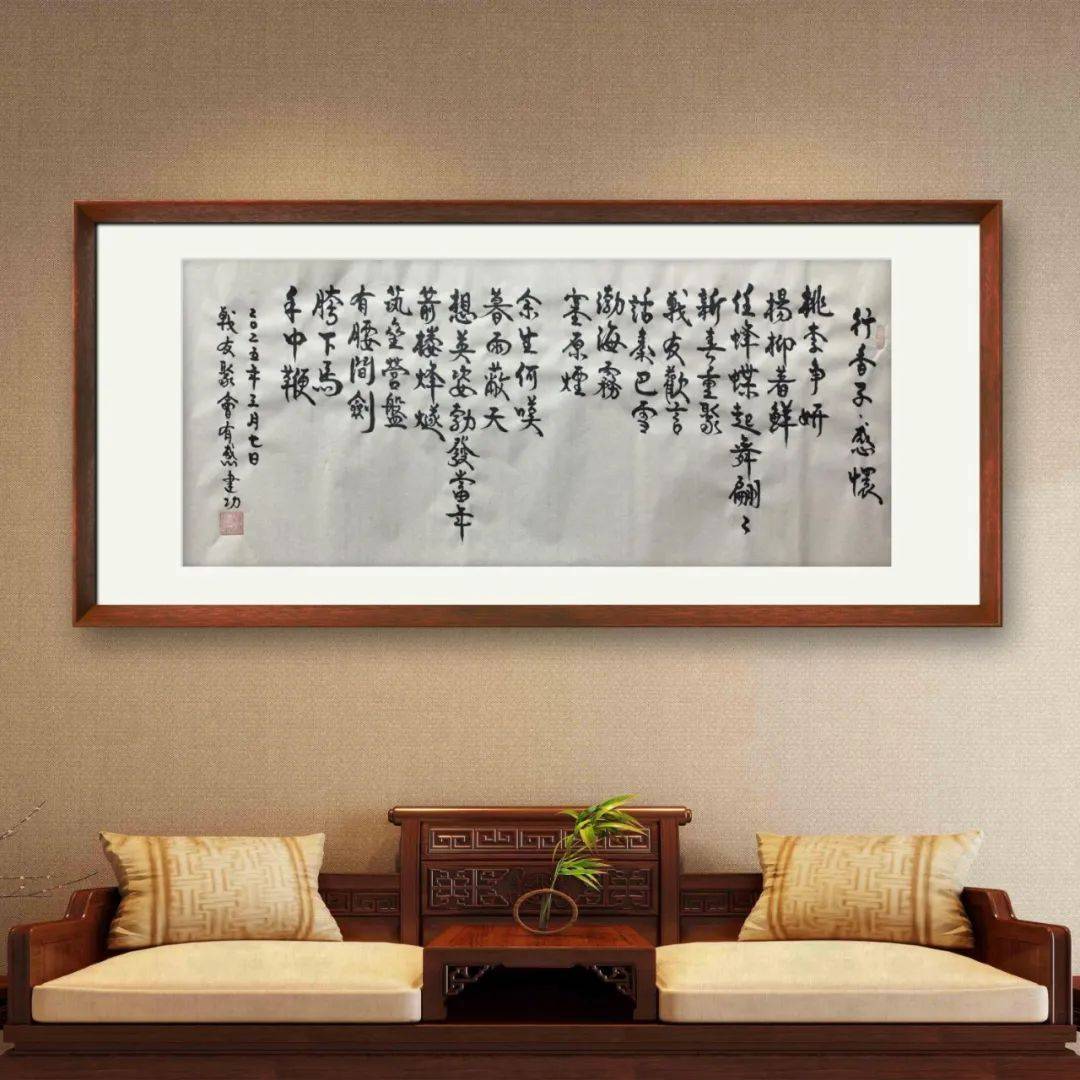 行香子·感懷
桃李争妍
楊柳着鮮
任蜂蝶起舞翩々
新春重聚
戰友歡言
話秦巴雪
渤海霧
塞原煙
余生何嘆
暮雨蔽天
想英姿勃發當年
箭樓烽燧
筑壘營盤
有腰間劍
胯下馬
手中鞭
二〇二五年三月七日
戰友聚會有感建功